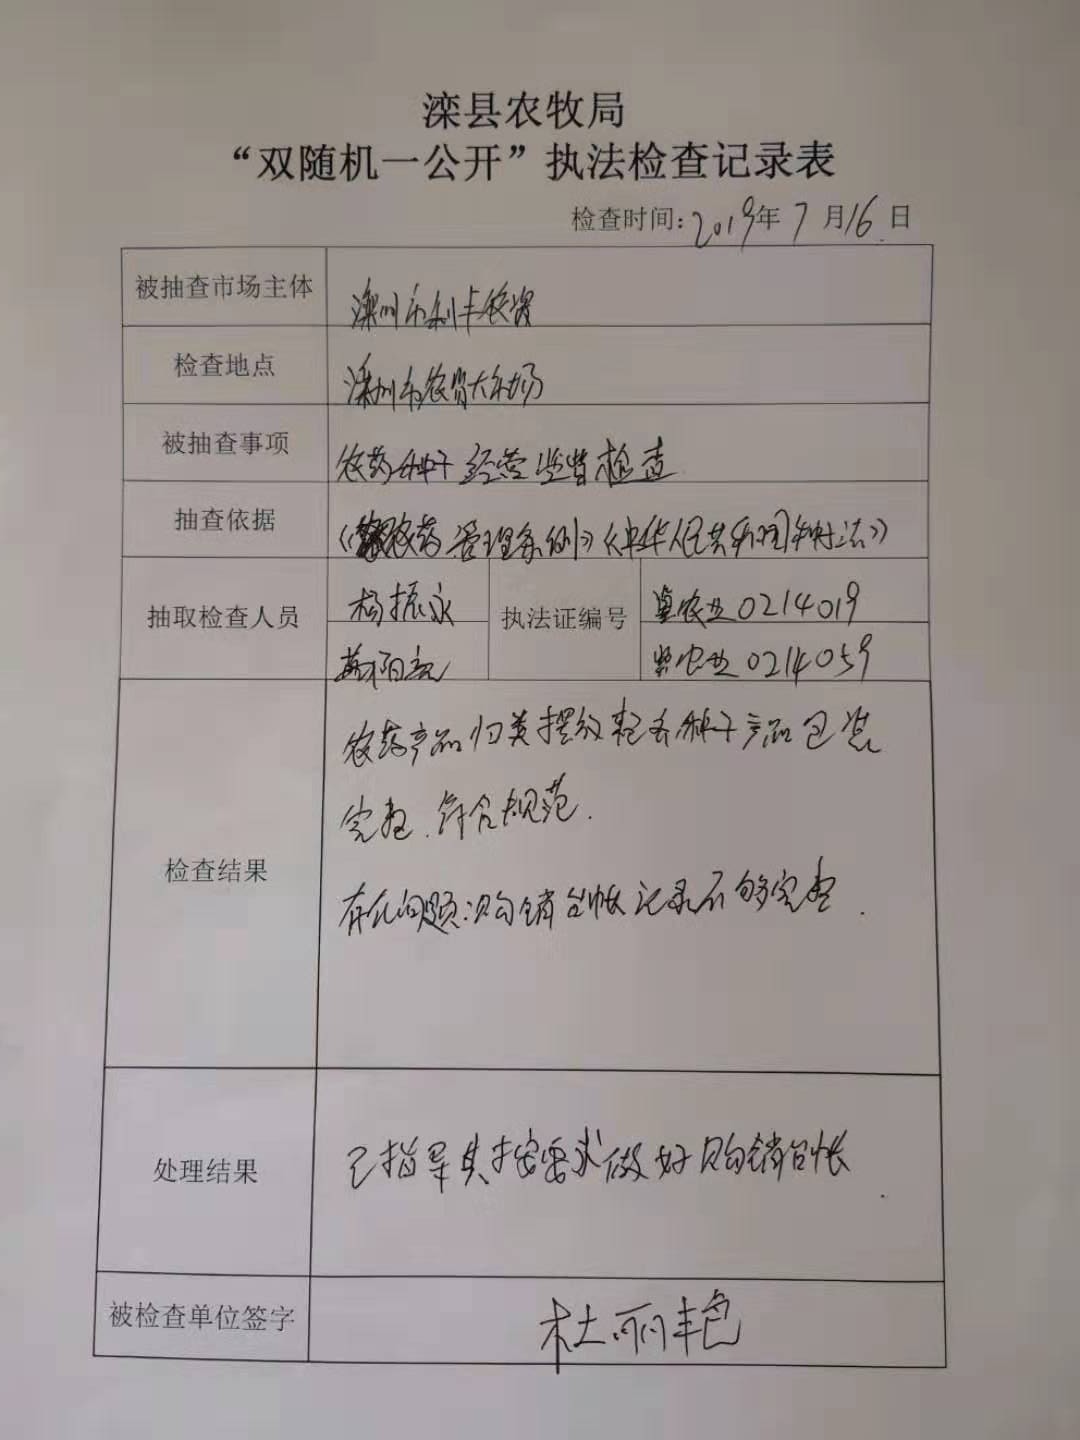 滦县农牧局
“双随机一公开”执法检查记录表
检查时间:2019年7月16日
被抽查市场主体 滦州市利丰农资
检查地点 滦州市农贸大市场
被抽查事项 农药种子经营监督检查
抽查依据 《农药管理条例》《中华人民共和国种子法》
抽取检查人员 杨振永 执法证编号 冀农业0214019
冀农业0214059
检查结果 农药产品归类摆放整齐种子产品包装
完整.符合规范.
存在问题:购销台帐记录不够完整.
处理结果 已指导其按要求做好购销台帐
被检查单位签字 杜丽艳